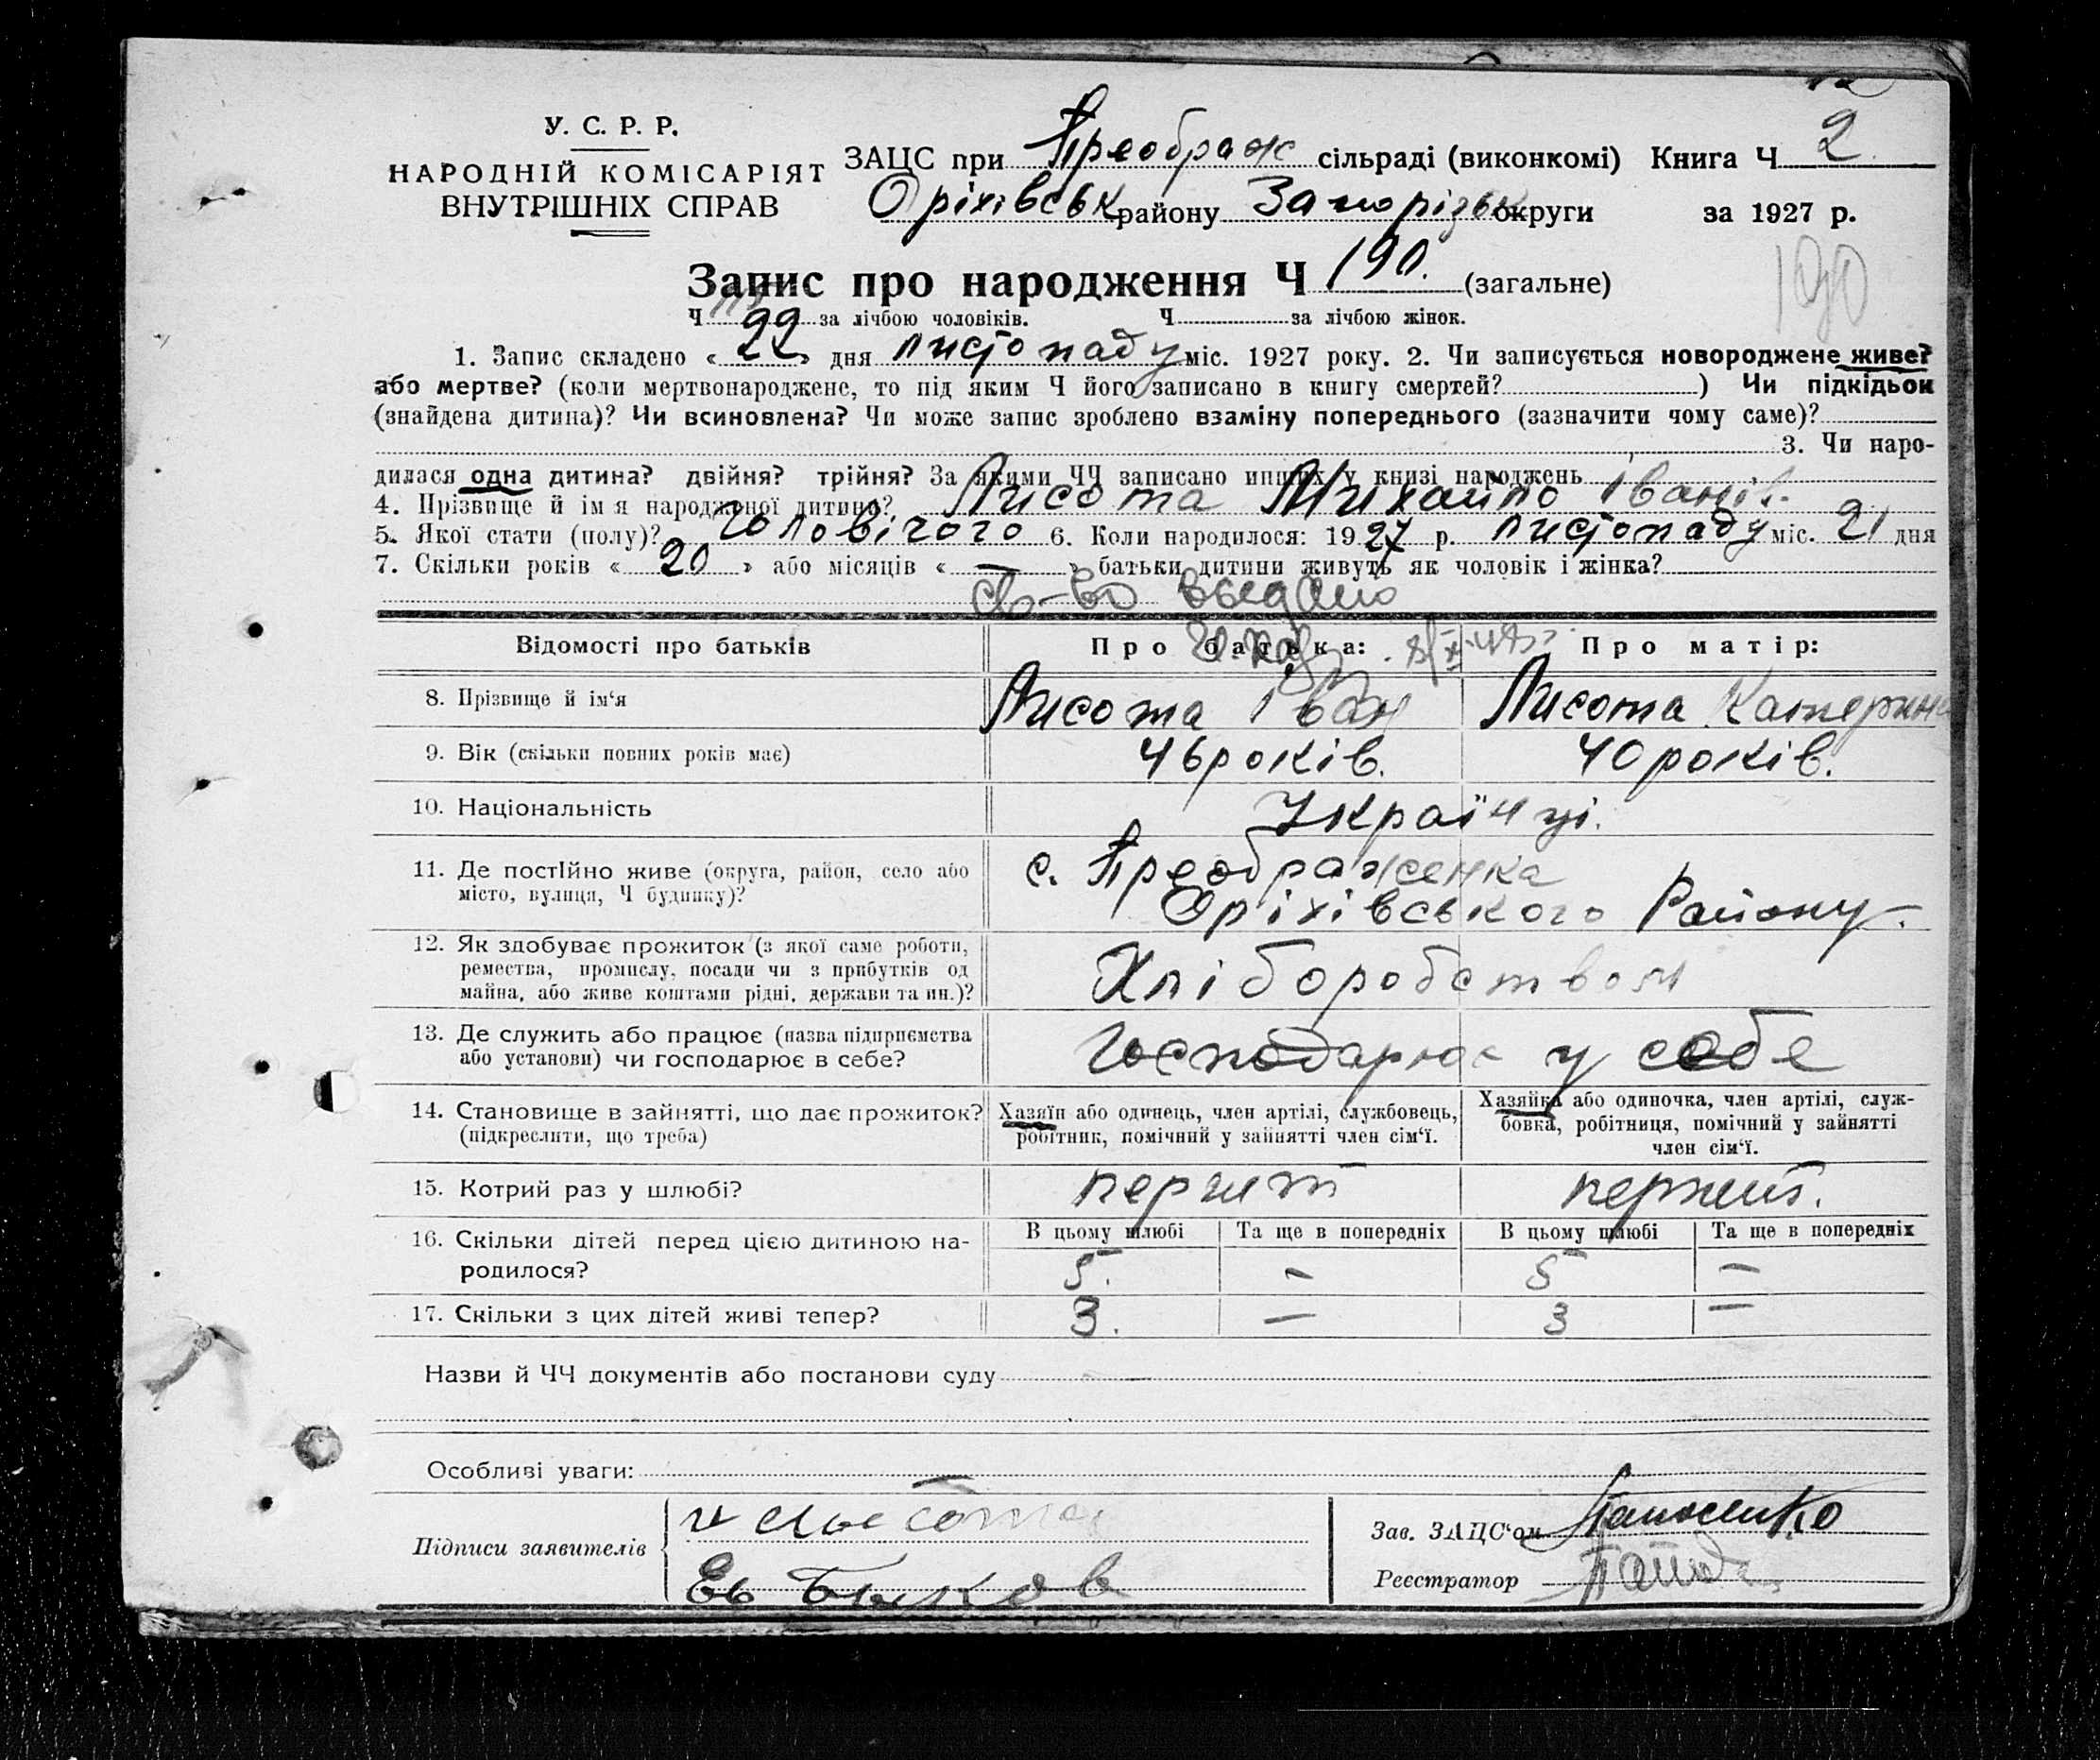 У. С. Р. Р.
НАРОДНІЙ КОМІСАРІЯТ
ВНУТРІШНІХ СПРАВ
ЗАЦС при Преображ сільраді (виконкомі) Книга Ч 2
Оріхівськ району Запорізьк округи за 1927 р.
Запис про народження Ч 190. (загальне)
190
Ч за лічбою чоловіків. Ч за лічбою жінок.
1. Запис складено « 22 » дня листопаду міс. 1927 року. 2. Чи записується новороджене живе?
або мертве? (коли мертвонароджене, то під яким Ч його записано в книгу смертей? ) Чи підкідьок
(знайдена дитина)? Чи всиновлена? Чи може запис зроблено взаміну попереднього (зазначити чому саме)?
3. Чи наро-
дилася одна дитина? двійня? трійня? За якими ЧЧ записано инших у книзі народжень
4. Прізвище й ім'я народженої дитини? Лисота Михайло Іванів.
5. Якої стати (полу)? чоловічого 6. Коли народилося: 1927 р. листопаду міс. 21 дня
7. Скільки років « 20 » або місяців « — » батьки дитини живуть як чоловік і жінка?
св-во выдано
Відомості про батьків Про батька: Про матір:
8. Прізвище й ім'я Лисота Іван Лисота Катерина
9. Вік (скільки повних років має) 46 років. 40 років.
10. Національність Українці.
11. Де постійно живе (округа, район, село або с. Преображенка
місто, вулиця, Ч будинку)? Оріхівського Району.
12. Як здобуває прожиток (з якої саме роботи,
ремества, промислу, посади чи з прибутків од Хліборобством
майна, або живе коштами рідні, держави та ин.)?
13. Де служить або працює (назва підприємства
або установи) чи господарює в себе? Господарює у себе
14. Становище в зайнятті, що дає прожиток? Хазяїн або одинець, член артілі, службовець, Хазяйка або одиночка, член артілі, служ-
(підкреслити, що треба) робітник, помічний у зайнятті член сім'ї. бовка, робітниця, помічний у зайнятті
член сім'ї.
15. Котрий раз у шлюбі? перший перший.
16. Скільки дітей перед цією дитиною на- В цьому шлюбі Та ще в попередніх В цьому шлюбі Та ще в попередніх
родилося? 5. — 5 —
17. Скільки з цих дітей живі тепер? 3. — 3 —
Назви й ЧЧ документів або постанови суду
Особливі уваги: —
Підписи заявителів
Быков
Зав. ЗАЦС'ом
Реєстратор